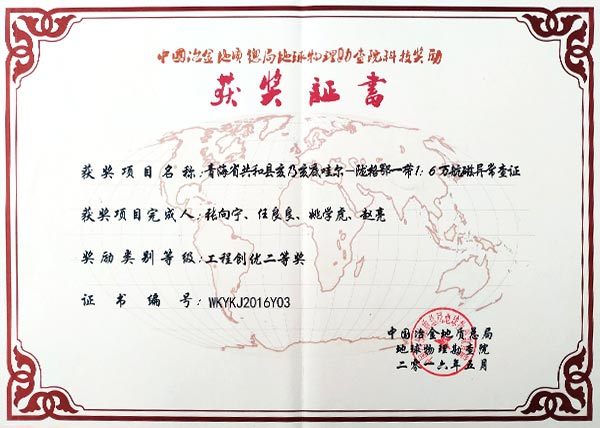 中國冶金地质總局地球物理勘查院科技奖励
获奖証書
获奖项目名称:青海省共和县亥乃亥哇尔—陇格鄂一带1:5万航磁异常查证
获奖项目完成人:张向宁、任良良、姚学虎、赵亮
奖励类别等级:工程创优二等奖
证书编号:WKYKJ2016Y03
中国冶金地质总局
地球物理勘查院
二零一六年五月